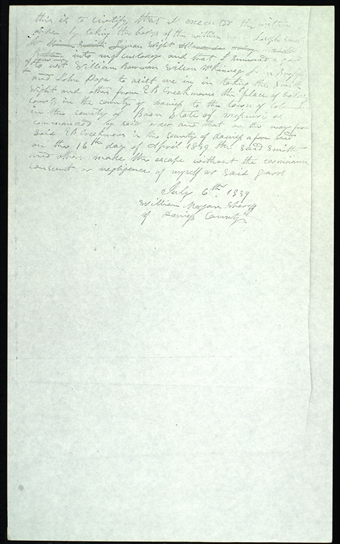 this is to certify that I executed the within
order by taking the bodys of the within Joseph
Lyman Wight
into my custody and that I summoned a guard
to wit William Bowman Wilson McKinney
and John Pope to assist me in in taking the said Smith
Wight and others from EB Creekmores the place of holding
Court in the county of Daviess to the town of
in the county of Boon State of Missouri as
commanded by said order and that on the way from
said EB Creekmore in the county of daviess afore said
on the 16th day of April 1839 the said Smith
and others make their escape without the connivance
consent or negligence of myself or said guard
July 6th 1839
William Morgan Sheriff
of Daviess County